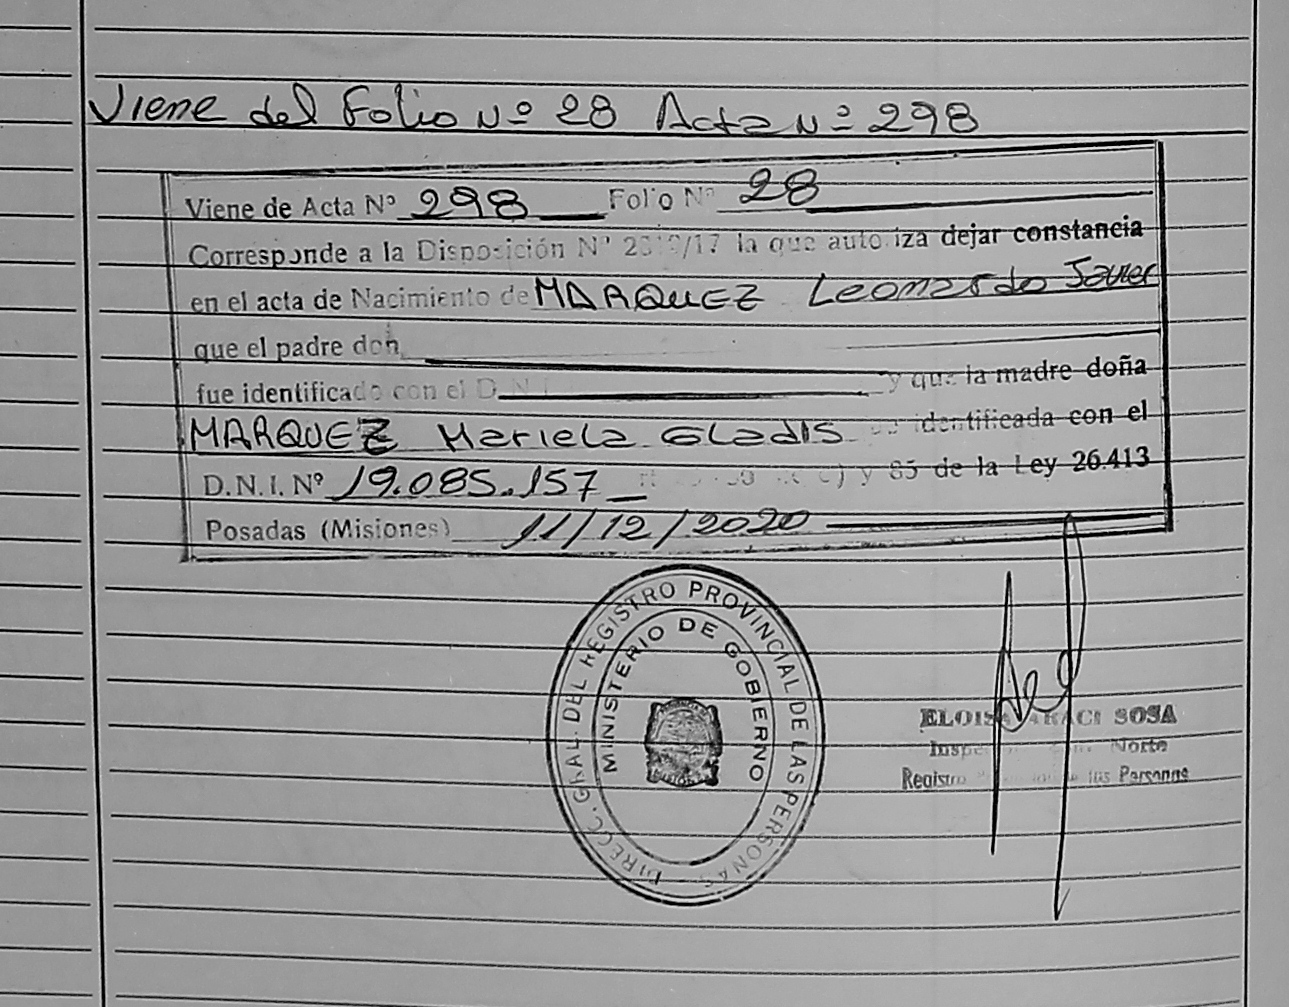 Viene del Folio Nº 28 Acta Nº 298
Viene de Acta Nº 298 Folio Nº 28
Corresponde a la Disposición Nº /17 la que autoriza dejar constancia
en el acta de Nacimiento de MARQUEZ Leonardo Javier
que el padre don
fue identificado con el D.N.I. y que la madre doña
MARQUEZ Mariela Gladis identificada con el
D.N.I. Nº 19.085.157 y 85 de la Ley 26.413
Posadas (Misiones) 11/12/2020
DIRECC. GRAL. DEL REGISTRO PROVINCIAL DE LAS PERSONAS
MINISTERIO DE GOBIERNO
ELOISA ARACI SOSA
Norte
Registro de las Personas